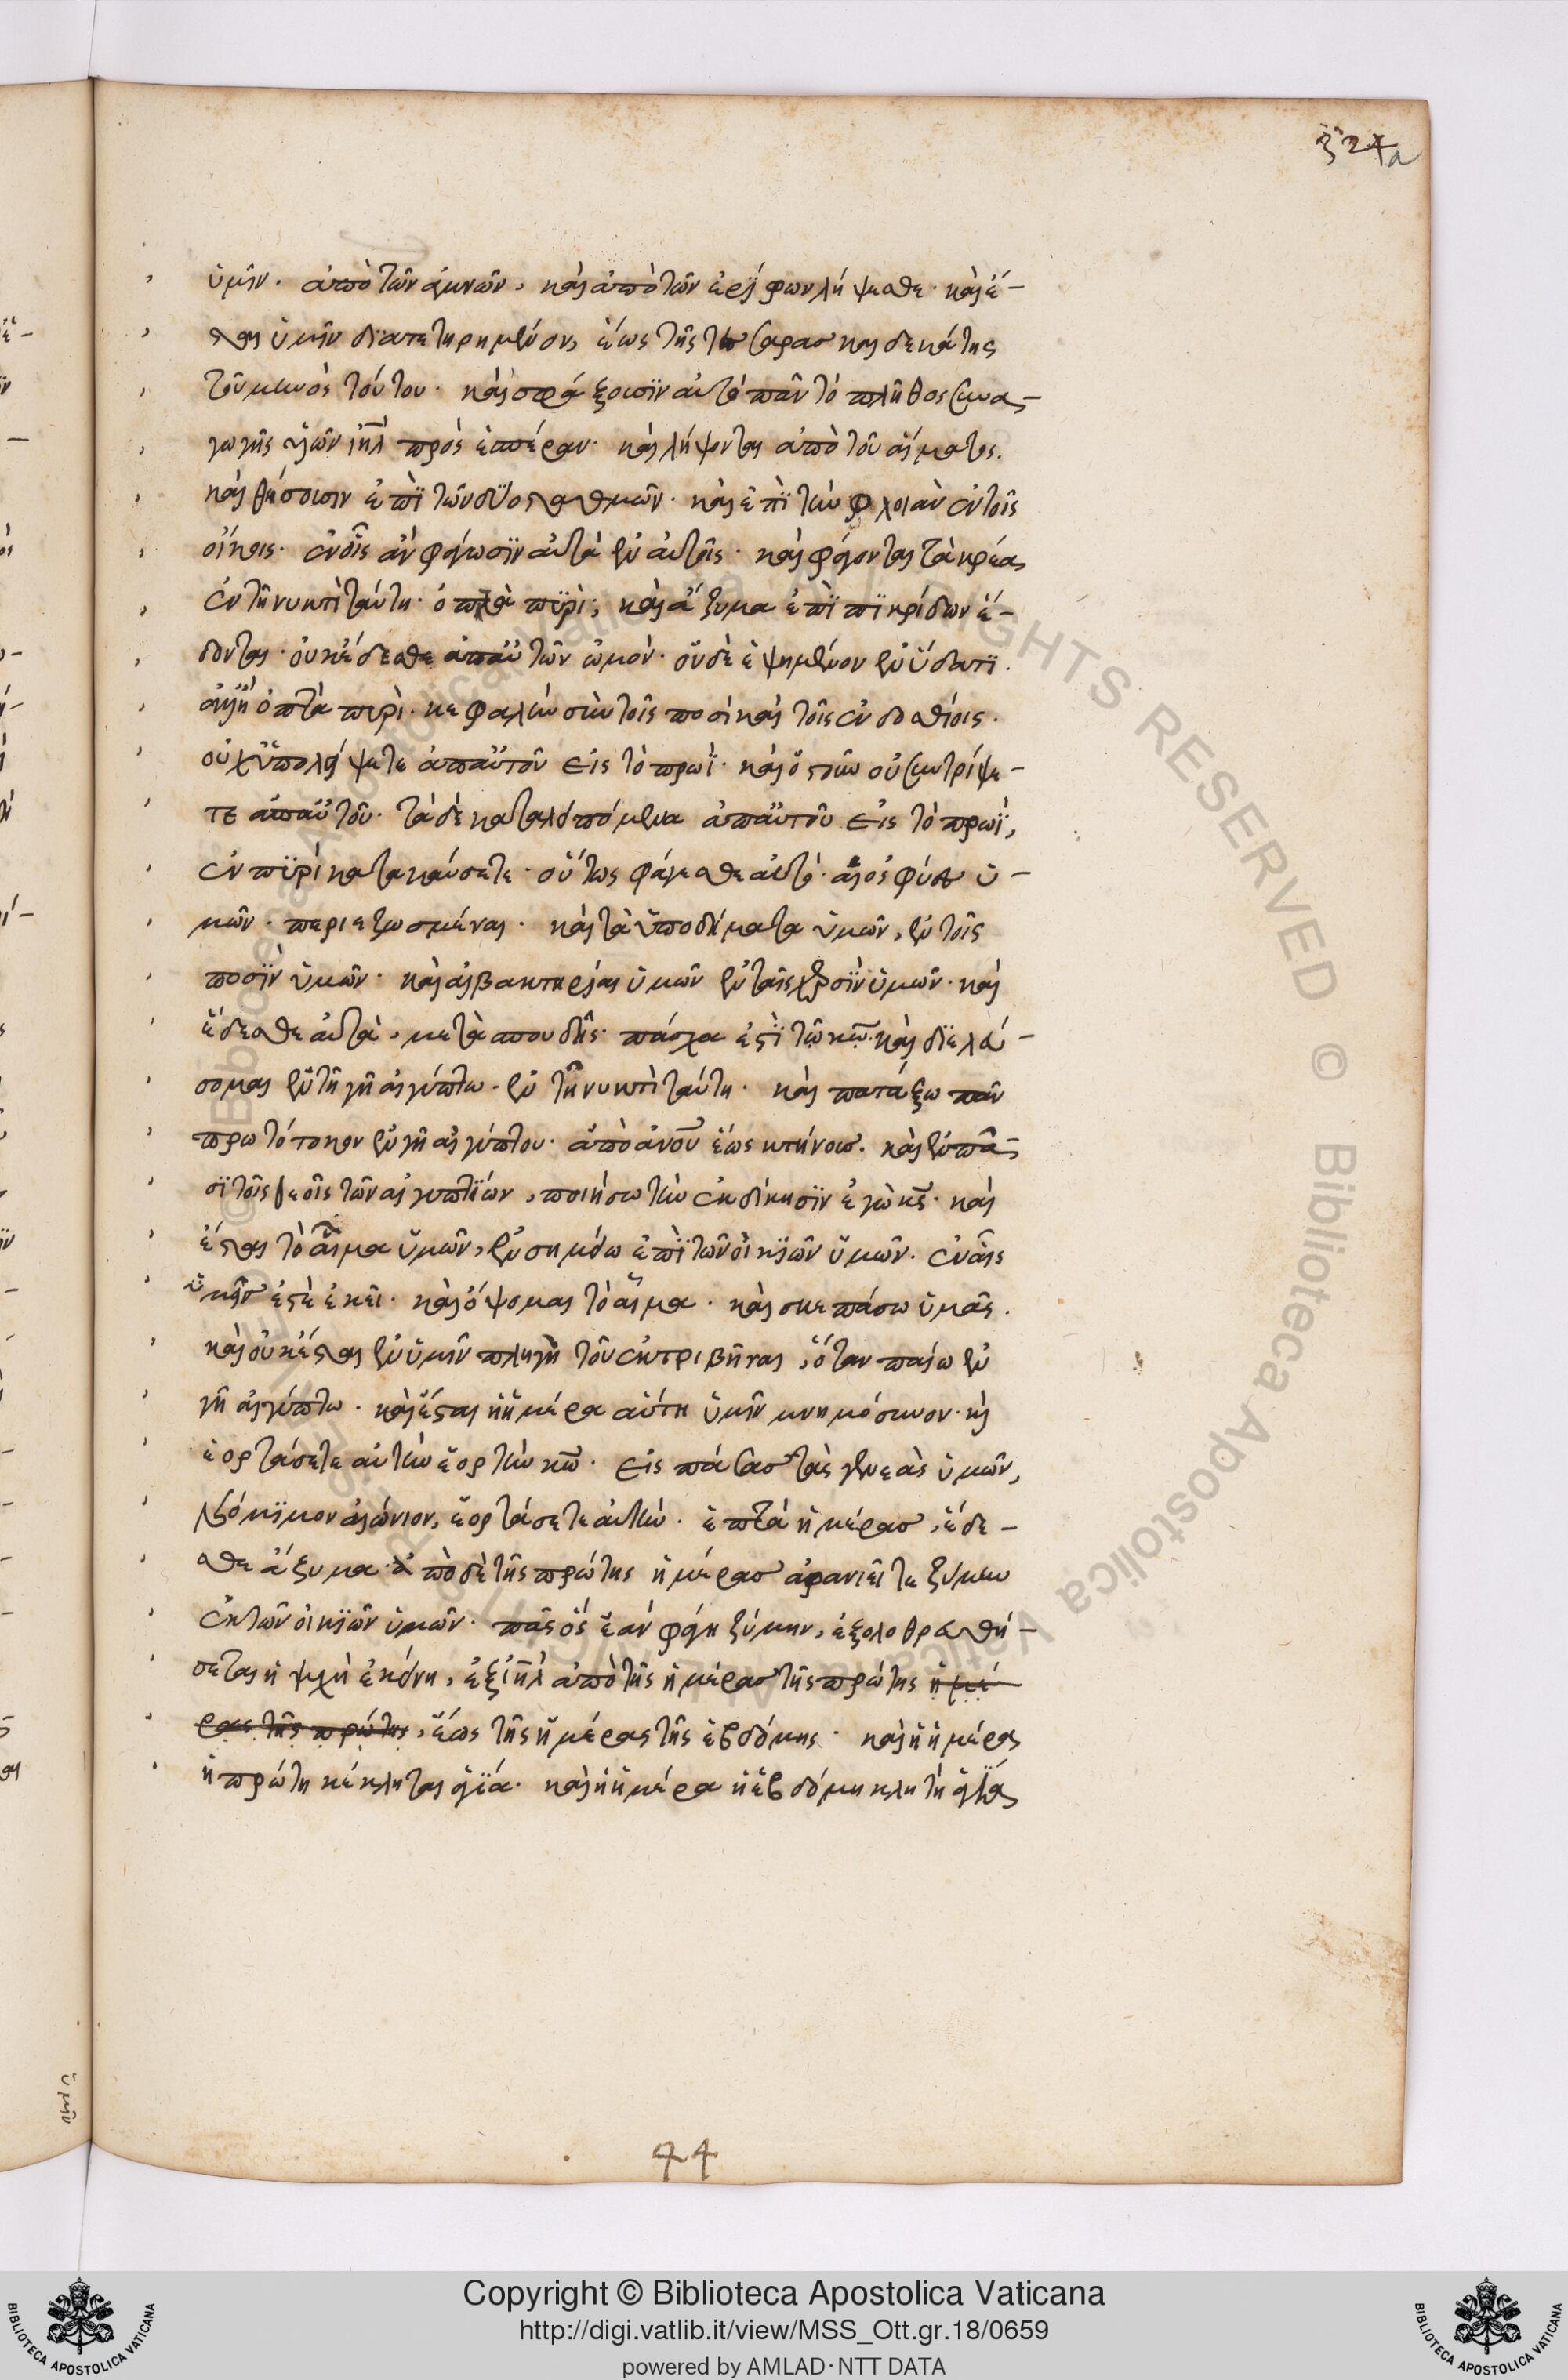 324a
ὑμῖν. ἀπὸ τῶν ἀμνῶν, καὶ ἀπὸ τῶν ἐρίφων λήψεσθε· καὶ ἔ-
σται ὑμῖν διατετηρημένον, ἕως τῆς τεσσαρασκαιδεκάτης
τοῦ μηνὸς τούτου· καὶ σφάξουσιν αὐτὸ πᾶν τὸ πλῆθος συνα-
γωγῆς υἱῶν ιηλ πρὸς ἑσπέραν· καὶ λήψονται ἀπὸ τοῦ αἵματος.
καὶ θήσουσιν ἐπὶ τῶν δύο σταθμῶν· καὶ ἐπὶ τὴν φλοιὰν ἐν τοῖς
οἴκοις· ἐν οἷς ἂν φάγωσιν αὐτὰ ἐν αὐτοῖς· καὶ φάγονται τὰ κρέα,
ἐν τῆ νυκτὶ ταύτη· ὀπτὰ πυρὶ, καὶ ἄζυμα ἐπὶ πικρίδων ἔ-
δονται· οὐκ ἔδεσθε ἀπαὐτῶν ὠμὸν· οὐδὲ ἑψημένον ἐν ὕδατι.
ἀλλὴ ὀπτὰ πυρὶ· κεφαλὴν σὺν τοῖς ποσὶ καὶ τοῖς ἐνδοσθίοις.
οὐχ ὑπολήψετε ἀπαὐτοῦ εἰς τὸ πρωῒ· καὶ ὀστοῦν οὐ συντρίψε-
τε ἀπαὐτοῦ· τὰ δὲ καταλειπόμενα ἀπαὐτοῦ εἰς τὸ πρωῒ,
ἐν πυρὶ κατακαύσετε· οὕτως φάγεσθε αὐτό· αἱ ὀσφύες ὑ-
μῶν· περιεζωσμέναι· καὶ τὰ ὑποδήματα ὑμῶν, ἐν τοῖς
ποσὶν ὑμῶν· καὶ αἱ βακτηρίαι ὑμῶν ἐν ταῖς χερσὶν ὑμῶν· καὶ
ἔδεσθε αὐτὰ, μετὰ σπουδῆς· πάσχα ἐστὶ τῶ κω· καὶ διελεύ-
σομαι ἐν τῆ γῆ αἰγύπτω· ἐν τῆ νυκτὶ ταύτη· καὶ πατάξω πᾶν
πρωτότοκον ἐν γῆ αἰγύπτου· ἀπὸ ἀνου ἕως κτήνους· καὶ ἐν πᾶ-
σι τοῖς θεοῖς τῶν αἰγυπτίων, ποιήσω τὴν ἐκδίκησιν ἐγὼ κς· καὶ
ἔσται τὸ αἷμα ὑμῶν, ἐν σημείω ἐπὶ τῶν οἰκιῶν ὑμῶν. ἐν αἷς
ὑμεῖς ἐστὲ ἐκεῖ· καὶ ὄψομαι τὸ αἷμα· καὶ σκεπάσω ὑμᾶς.
καὶ οὐκ ἔσται ἐν ὑμῖν πληγὴ τοῦ ἐκτριβῆναι, ὅταν παίω ἐν
γῆ αἰγύπτω· καὶ ἔσται ἡ ἡμέρα αὕτη ὑμῖν μνημόσυνον· καὶ
ἑορτάσετε αὐτὴν ἑορτὴν κω· εἰς πάσας τὰς γενεὰς ὑμῶν,
νόμιμον αἰώνιον, ἑορτάσετε αὐτήν· ἑπτὰ ἡμέρας, ἔδε-
σθε ἄζυμα· ἀπὸ δὲ τῆς πρώτης ἡμέρας ἀφανιεῖτε ζύμην
ἐκ τῶν οἰκιῶν ὑμῶν· πᾶς ὃς ἐὰν φάγη ζύμην, ἐξολοθρευθή-
σεται ἡ ψυχὴ ἐκείνη, ἐξ ιηλ ἀπὸ τῆς ἡμέρας τῆς πρώτης ἡμέ-
ρας τῆς πρώτης, ἕως τῆς ἡμέρας τῆς ἑβδόμης· καὶ ἡ ἡμέρα
ἡ πρώτη κέκληται ἁγία· καὶ ἡ ἡμέρα ἡ ἑβδόμη κλητὴ ἁγία
ὑμῖν
44
BIBLIOTECA APOSTOLICA VATICANA
Copyright © Biblioteca Apostolica Vaticana
http://digi.vatlib.it/view/MSS_Ott.gr.18/0659
powered by AMLAD·NTT DATA
BIBLIOTECA APOSTOLICA VATICANA